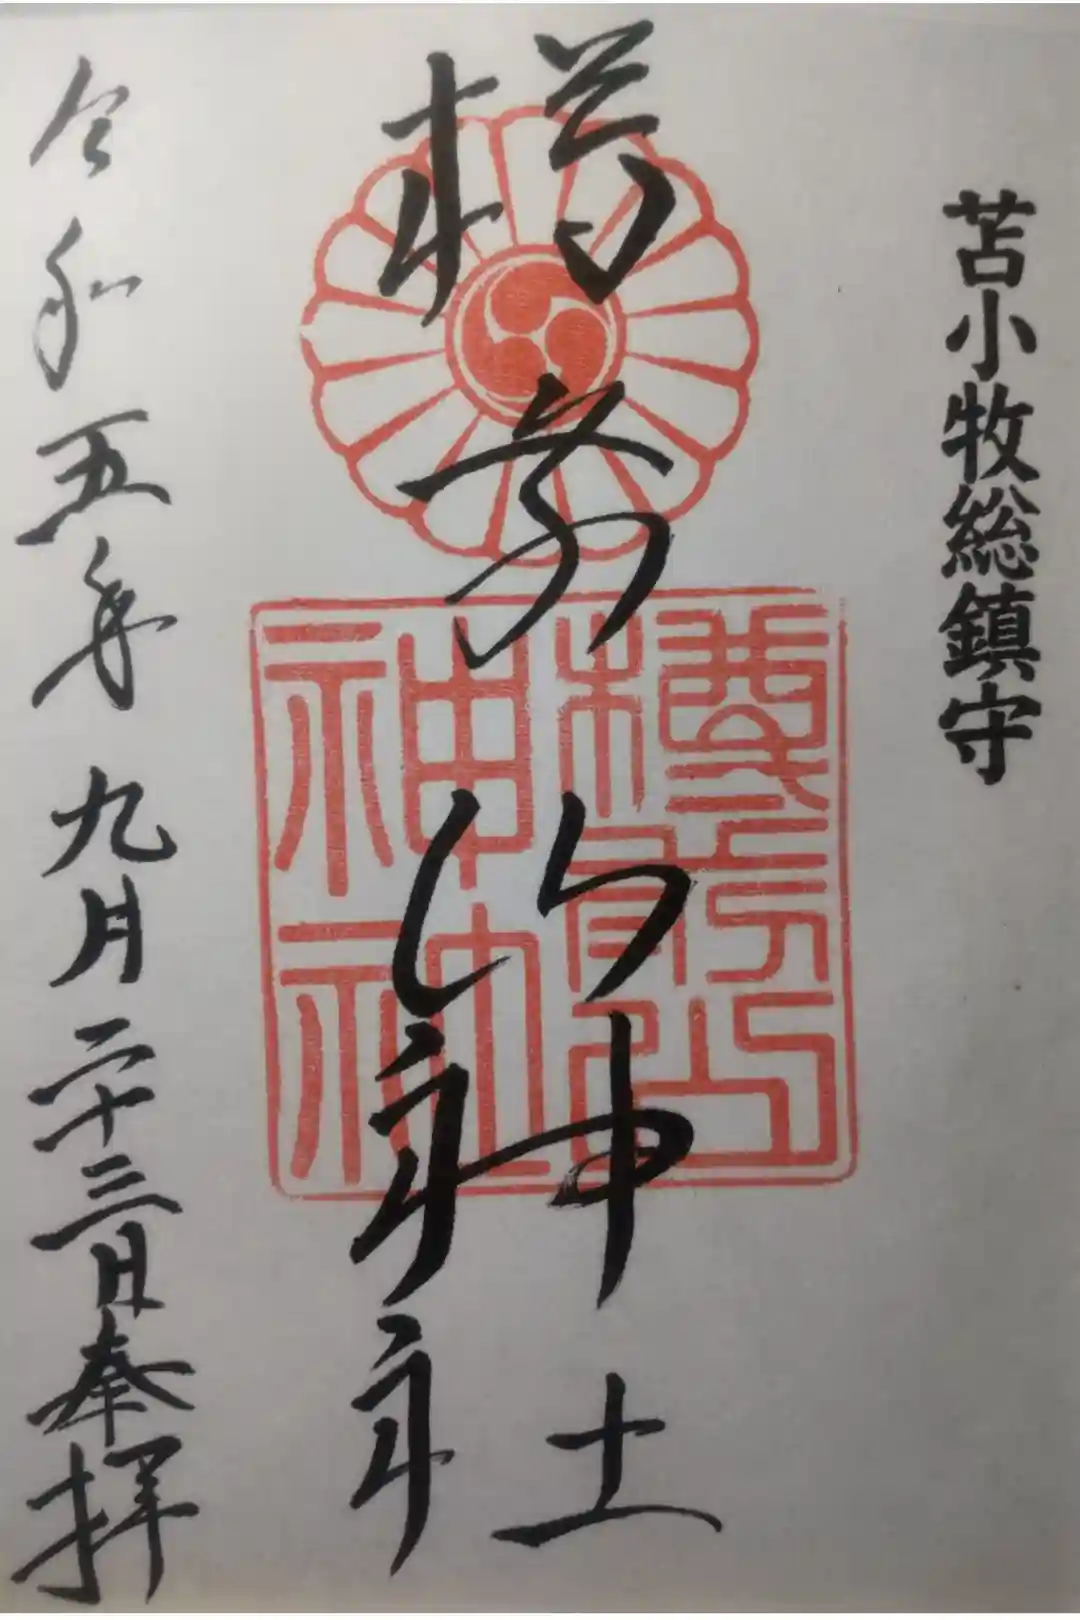 苫小牧総鎮守
樽前山神社
樽前山
神社
令和五年九月二十三日奉拝